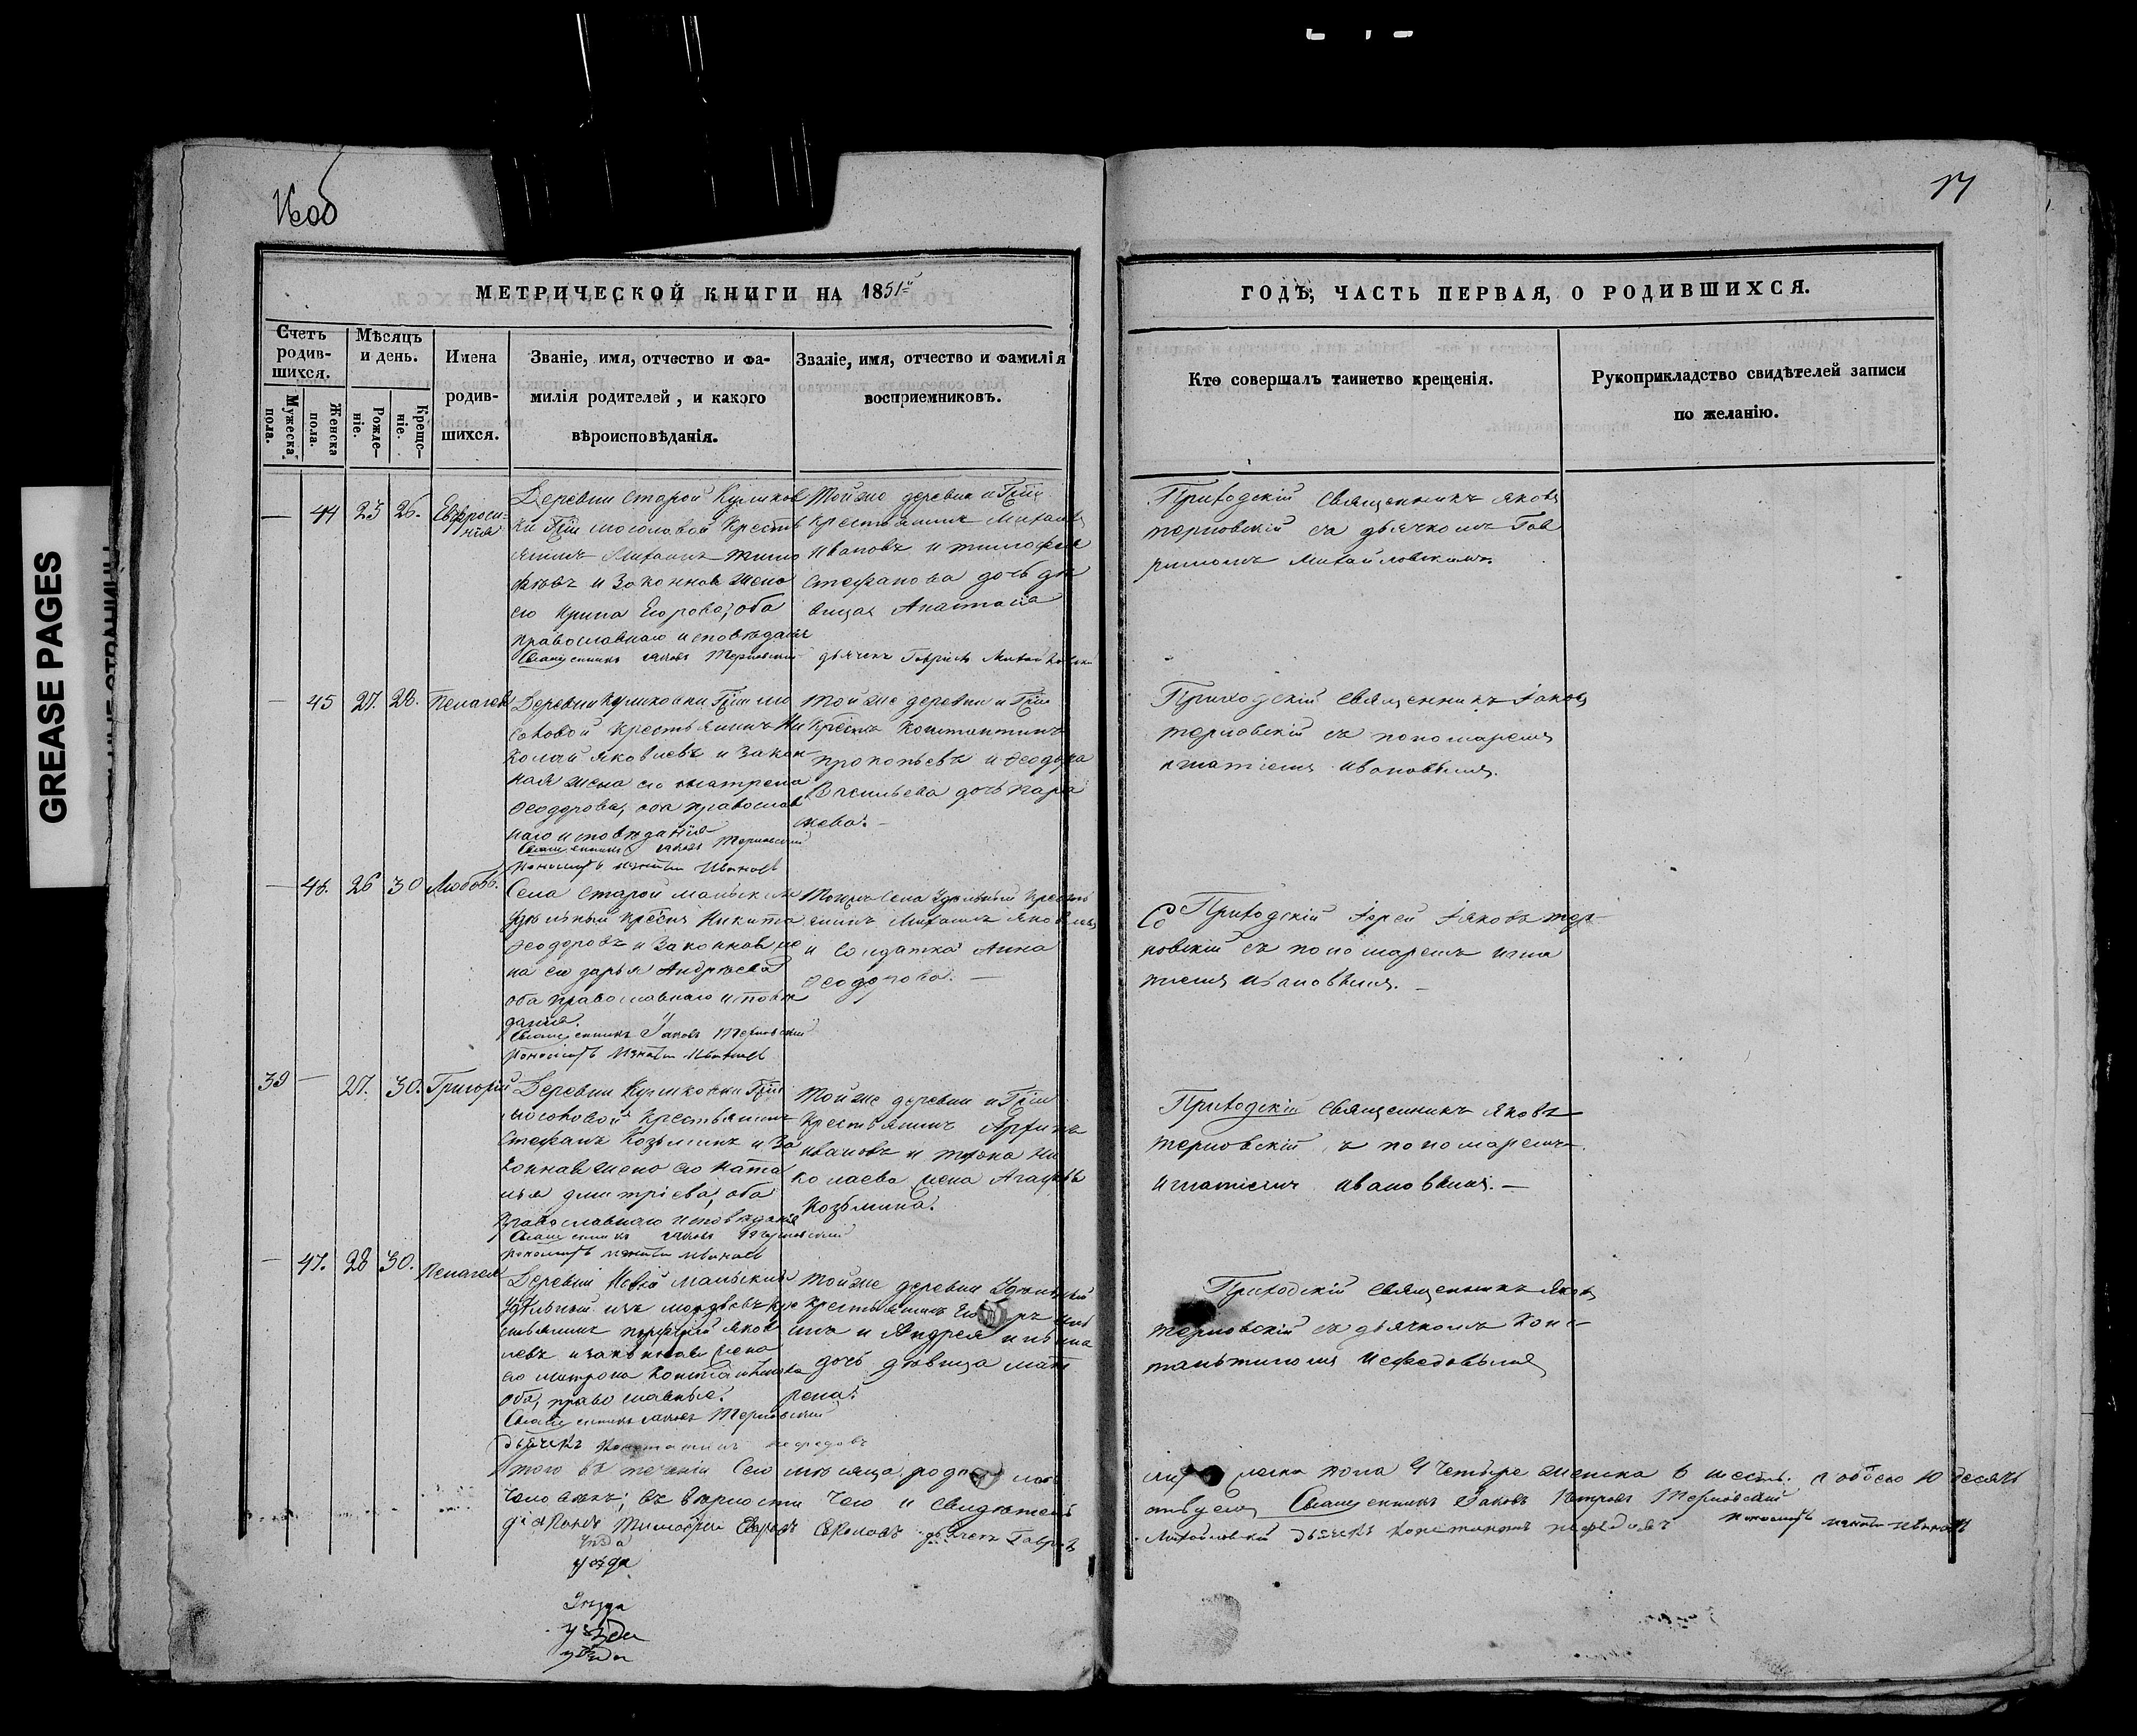 16 об
17
GREASE PAGES
МЕТРИЧЕСКОЙ КНИГИ НА 1851й
ГОДЪ, ЧАСТЬ ПЕРВАЯ, О РОДИВШИХСЯ.
Счетъ родив-шихся.
Мужеска пола.
Женска пола.
Мѣсяцъ и день.
Рожде-ніе.
Креще-ніе.
Имена родив-шихся.
Званіе, имя, отчество и фа-
милія родителей, и какого
вѣроисповѣданія.
Званіе, имя, отчество и фамилія
восприемниковъ.
Кто совершалъ таинство крещенія.
Рукоприкладство свидѣтелей записи
по желанію.
— 44 25 26. Евфроси-
нія
Деревни Старой Куликов
ки Гжи Мосоловой Кресть
янинъ Михаилъ Тимо
фѣевъ и Законная жена
его Ирина Егорова, оба
православнаго исповѣданія
Священникъ Іаковъ Терновскій
Тойже деревни и Гжи
Крестьянинъ Михаилъ
Ивановъ и Тимофея
Стефанова дочь дѣ
вица Анастасія
дьячекъ Гавріилъ Михайловскій
Приходскій Священникъ Яковъ
Терновскій съ дьячкомъ Гав
ріиломъ Михайловскимъ.
— 45 27. 28. Пелагея
Деревни Куликовки Гжи Мо
соловой Крестьянинъ Ни
колай Яковлевъ и Закон
ная жена его Матрена
Феодорова, оба православ
наго исповѣданія
Священникъ Іаковъ Терновскій
Пономарь Игнатій Ивановъ
Тойже деревни и Гжи
Кресн Константинъ
Прокопьевъ и Феодора
Васильева дочь Парас
кева.
Приходскій Священникъ Іаковъ
Терновскій съ пономаремъ
Игнатіемъ Ивановымъ.
— 46. 26 30 Любовь.
Села Старой Малыклы
Удѣльный Кресн Никита
Феодоровъ и Законная же
на его Дарья Андреева
оба православнаго исповѣ
данія.
Священникъ Іаковъ Терновскій
Пономарь Игнатій Ивановъ
Тогоже Села Удѣльный Кресть
янинъ Михаилъ Яковлевъ
и Солдатка Анна
Феодорова. —
Приходскій Іерей Іяковъ Тер-
новскій съ пономаремъ Игна
тіемъ Ивановымъ. —
39 — 27. 30. Григорій
Деревни Куликовки Гжи
Мосоловой Крестьянинъ
Стефанъ Козьминъ и За
конная жена его Ната
лья Дмитріева, оба
Православнаго исповѣданія
Священникъ Іаковъ Терновскій
Пономарь Игнатій Ивановъ
Тойже деревни и Гжи
Крестьянинъ
Ивановъ и Ни
колаева жена Агафья
Козьмина.
Приходскій Священникъ Яковъ
Терновскій съ пономаремъ
Игнатіемъ Ивановымъ. —
— 47. 28 30. Пелагея
Деревни Новой Малыклы
Удѣльный изъ мордвовъ Кре
стьянинъ Яков
левъ и законная жена
его Матрона Константинова
оба, православные.
Священникъ Іаковъ Терновскій
Дьячекъ Константинъ Нефедовъ
Тойже деревни Удѣльный
Крестьянинъ
и Андрея
дочь дѣвица Мат
рена.
Приходскій Священникъ Яковъ
Терновскій съ дьячкомъ Конс-
тантиномъ Нефедовымъ
Итого въ теченіи Сего мѣсяца
пола 4 четыре женска 6 шесть. а обоего 10 десять
человѣкъ; въ вѣрности чего и Свидѣтель
ствуемъ Священникъ Іаковъ Петровъ Терновскій
діаконъ Тимофей дьячекъ Гавріилъ
Михайловскій Дьячекъ Константинъ Нефедовъ Пономарь Игнатій Ивановъ
уѣзда
уѣзда
уѣзда
уѣзда